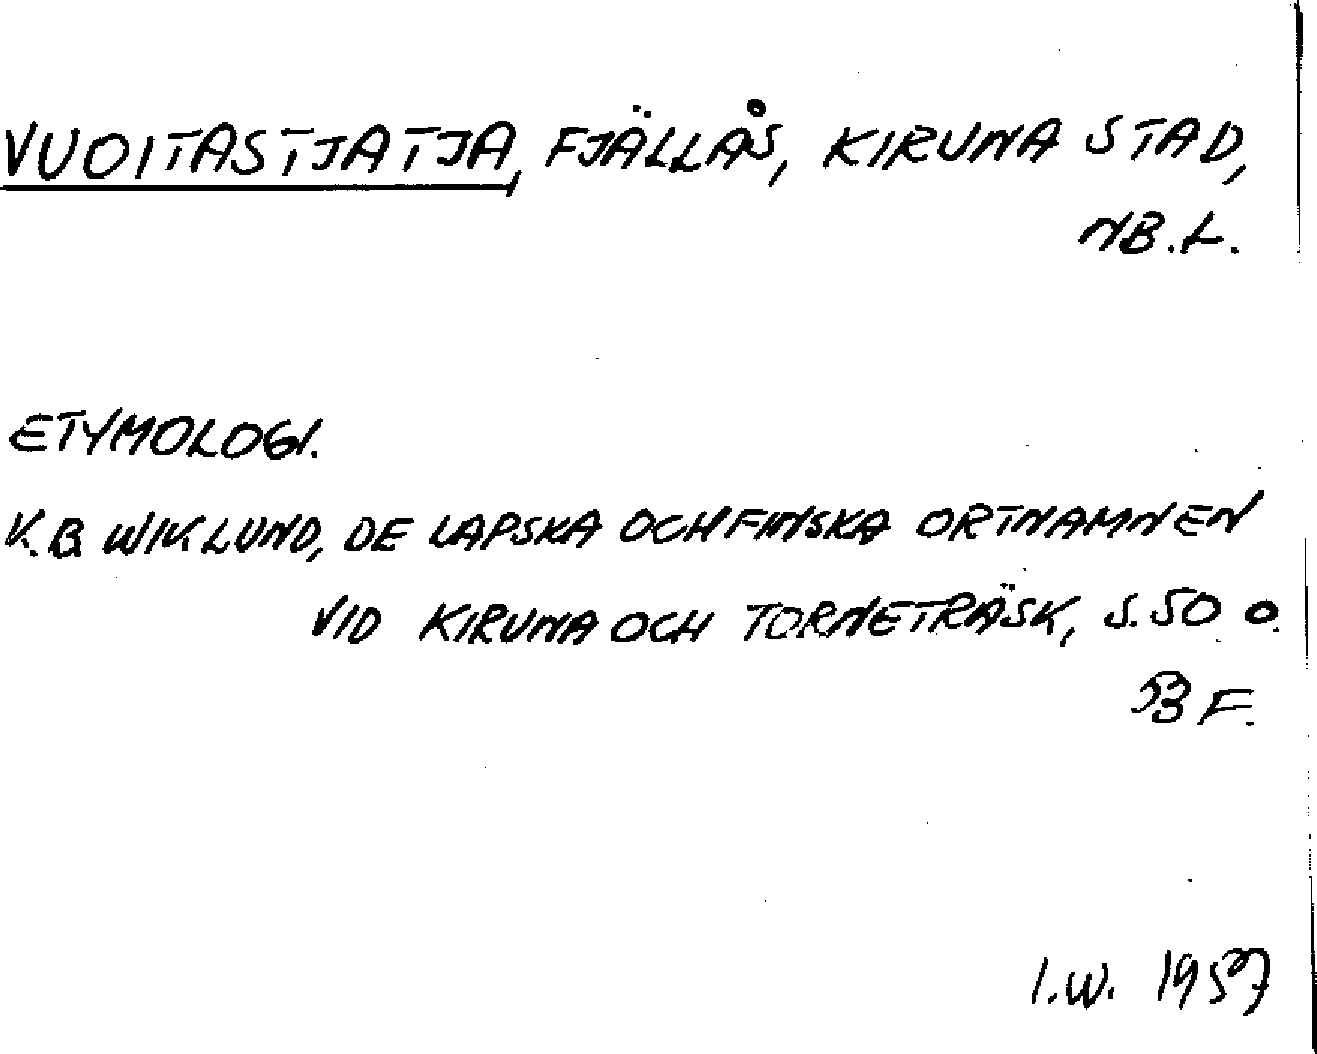 VUOITASTJATJA, FJÄLLÅS, KIRUNA STAD,
NB.L.
ETYMOLOGI.
K.B. WIKLUND, DE LAPSKA OCH FINSKA ORTNAMNEN
VID KIRUNA OCH TORNETRÄSK, S. 50 O.
53 F.
I.W. 1957